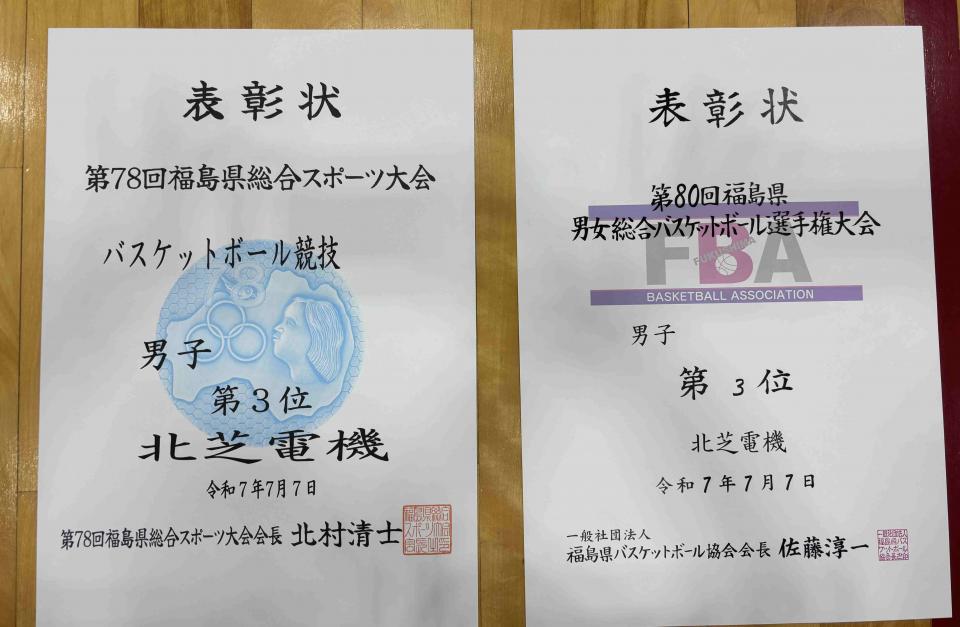 表彰状
第78回福島県総合スポーツ大会
バスケットボール競技
男子
第3位
北芝電機
令和7年7月7日
第78回福島県総合スポーツ大会会長 北村清士
表彰状
第80回福島県
男女総合バスケットボール選手権大会
FBA
FUKUSHIMA
BASKETBALL ASSOCIATION
男子
第 3 位
北芝電機
令和7年7月7日
一般社団法人
福島県バスケットボール協会会長 佐藤淳一